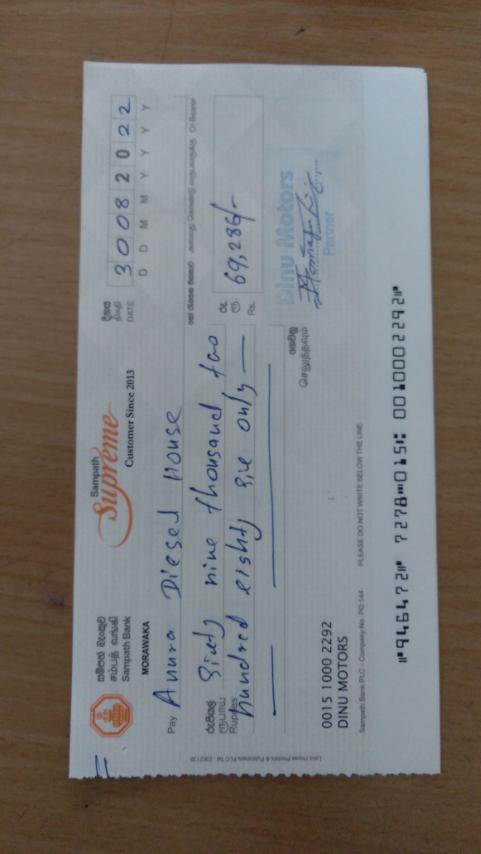 සම්පත් බැංකුව
சம்பத் வங்கி
Sampath Bank
Sampath
Supreme
Customer Since 2013
දිනය
திகதி
DATE
30082022
D D M M Y Y Y Y
MORAWAKA
Pay Anura Diesel House
Or Bearer
රුපියල්
ரூபாய்
Rupees
Sixty nine thousand two
hundred eighty six only
රු.
ரூ.
Rs.
69,286/-
Dinu Motors
Partner
0015 1000 2292
DINU MOTORS
Sampath Bank PLC - Company No. PQ 144
PLEASE DO NOT WRITE BELOW THE LINE
⑈946472⑈ 7278⑉015⑆ 0010002292⑈